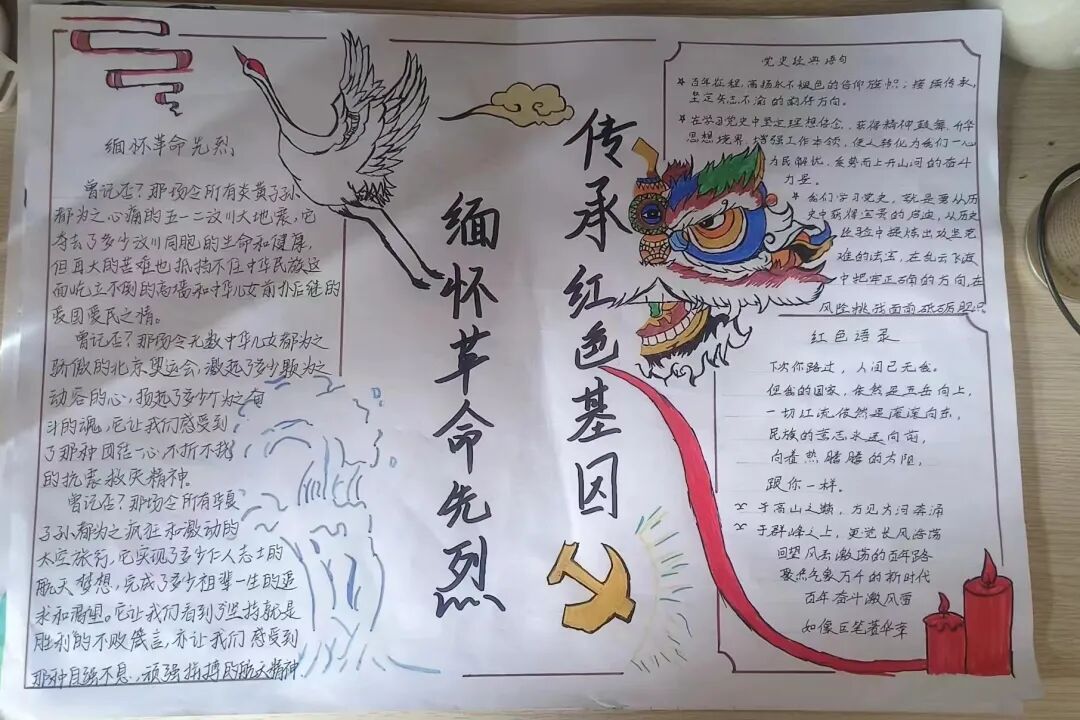 缅怀革命先烈
曾记否？那场令所有炎黄子孙
都为之心痛的五一二汶川大地震，它
夺去了多少汶川同胞的生命和健康，
但再大的苦难也抵挡不住中华民族这
面屹立不倒的高墙和中华儿女前仆后继的
爱国爱民之情。
曾记否？那场令无数中华儿女都为之
骄傲的北京奥运会，激起了多少颗为之
动容的心，扬起了多少为之奋
斗的魂，它让我们感受到
了那种团结一心，不折不挠
的抗震救灾精神。
曾记否？那场令所有华夏
子孙都为之疯狂和激动的
太空旅行，它实现了多少仁人志士的
航天梦想，完成了多少祖辈一生的追
求和渴望。它让我们看到了坚持就是
胜利的不败箴言，亦让我们感受到
那种自强不息，顽强拼搏的航天精神
缅怀革命先烈
传承红色基因
党史经典语句
百年征程，高扬永不褪色的信仰旗帜；接续传承，
坚定矢志不渝的前行方向。
在学习党史中坚定理想信念、获得精神鼓舞、升华
思想境界、增强工作本领，使人转化为我们一心
为民解忧，乘势而上开山河的奋斗
力量。
我们学习党史，就是要从历
史中获得宝贵的启迪，从历史
经验中提炼出攻坚克
难的法宝，在乱云飞渡
中把牢正确的方向，在
风险挑战面前砥砺胆识
红色语录
下次你路过，人间已无我。
但我的国家，依然是五岳向上，
一切江流依然是滚滚向东，
民族的意志永远向前，
向着热腾腾的太阳，
跟你一样。
于高山之巅，方见大河奔涌
于群峰之上，更觉长风浩荡
回望风云激荡的百年路
聚焦气象万千的新时代
百年奋斗激风雷
如像巨笔著华章